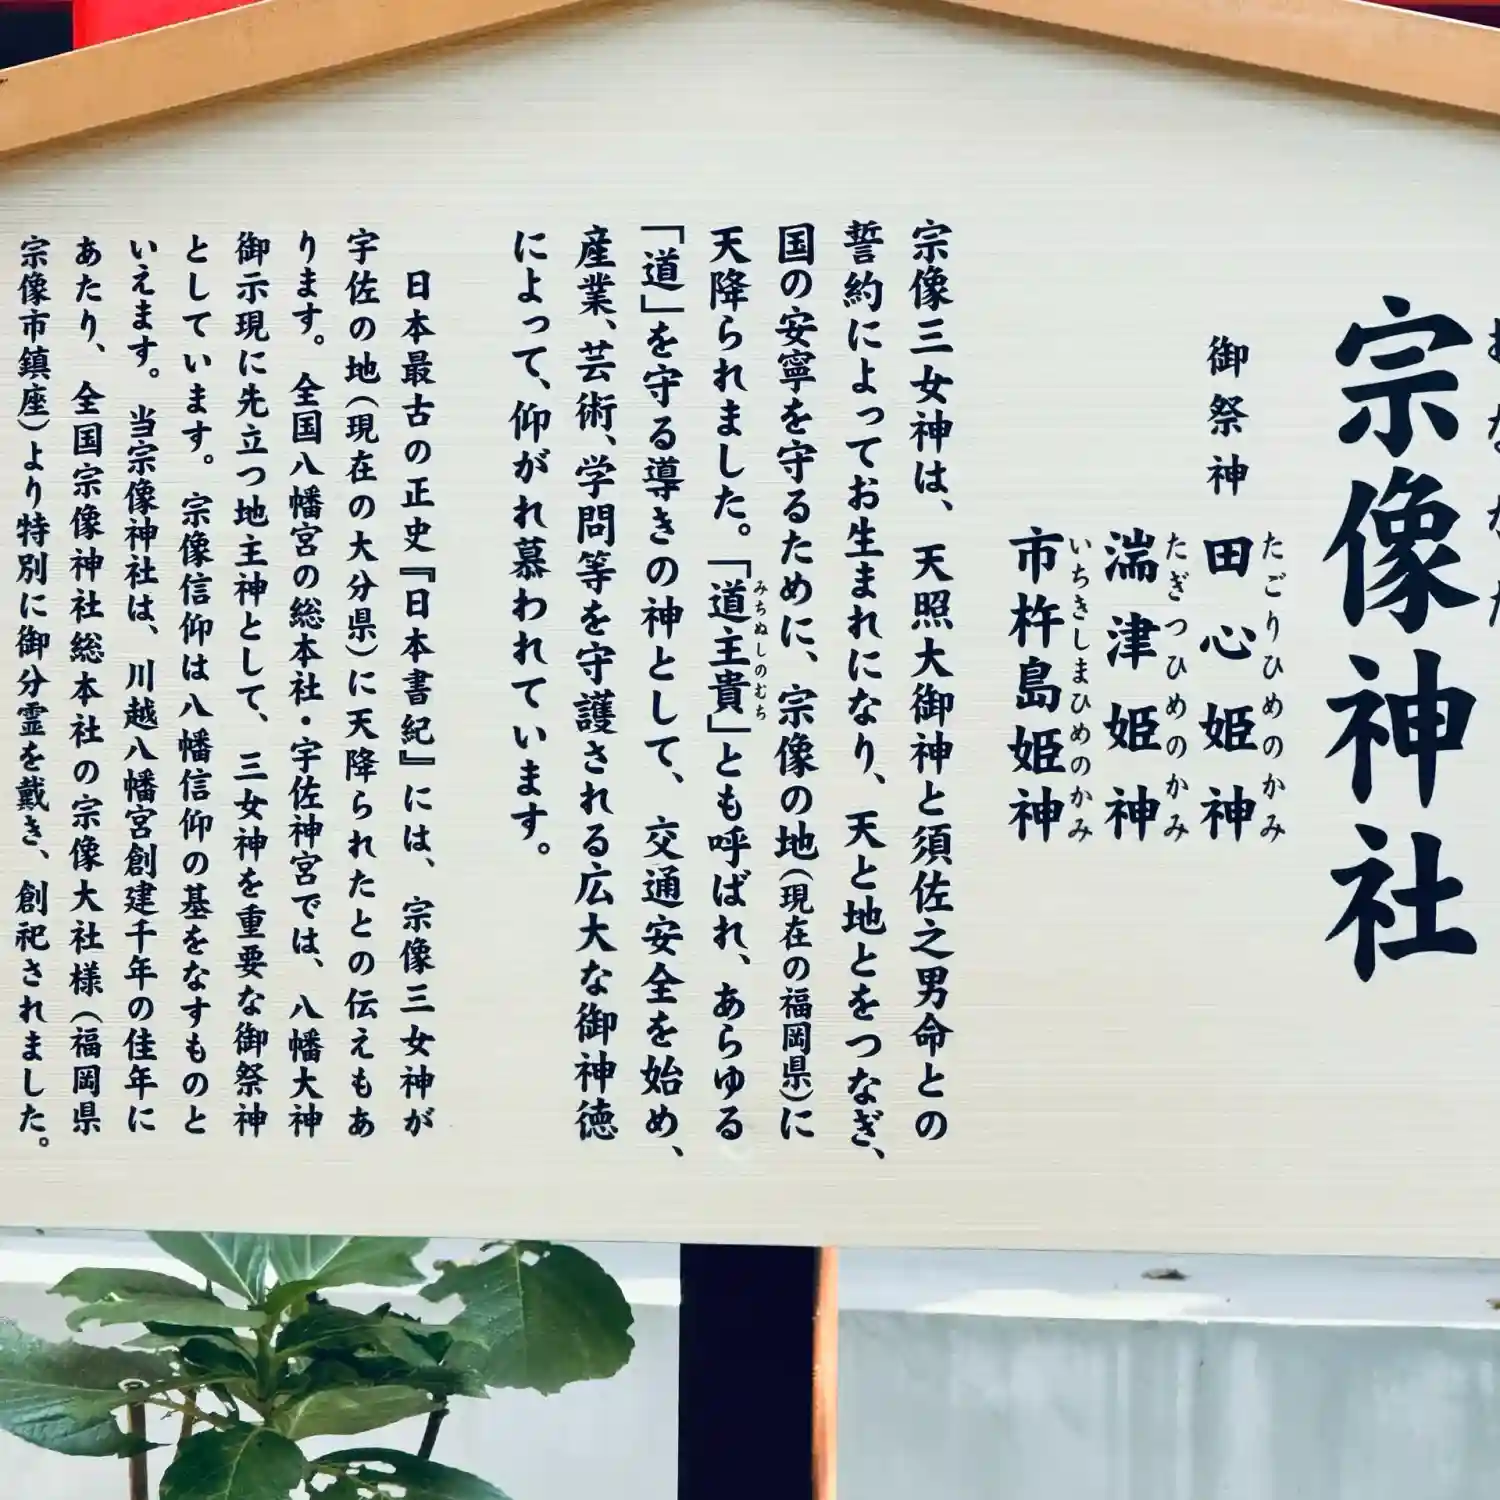 宗像神社
御祭神
田心姫神
たごりひめのかみ
湍津姫神
たぎつひめのかみ
市杵島姫神
いちきしまひめのかみ
宗像三女神は、天照大御神と須佐之男命との
誓約によってお生まれになり、天と地とをつなぎ、
国の安寧を守るために、宗像の地(現在の福岡県)に
天降られました。「道主貴」とも呼ばれ、あらゆる
みちぬしのむち
「道」を守る導きの神として、交通安全を始め、
産業、芸術、学問等を守護される広大な御神徳
によって、仰がれ慕われています。
日本最古の正史『日本書紀』には、宗像三女神が
宇佐の地(現在の大分県)に天降られたとの伝えもあ
ります。全国八幡宮の総本社・宇佐神宮では、八幡大神
御示現に先立つ地主神として、三女神を重要な御祭神
としています。宗像信仰は八幡信仰の基をなすものと
いえます。当宗像神社は、川越八幡宮創建千年の佳年に
あたり、全国宗像神社総本社の宗像大社様(福岡県
宗像市鎮座)より特別に御分霊を戴き、創祀されました。